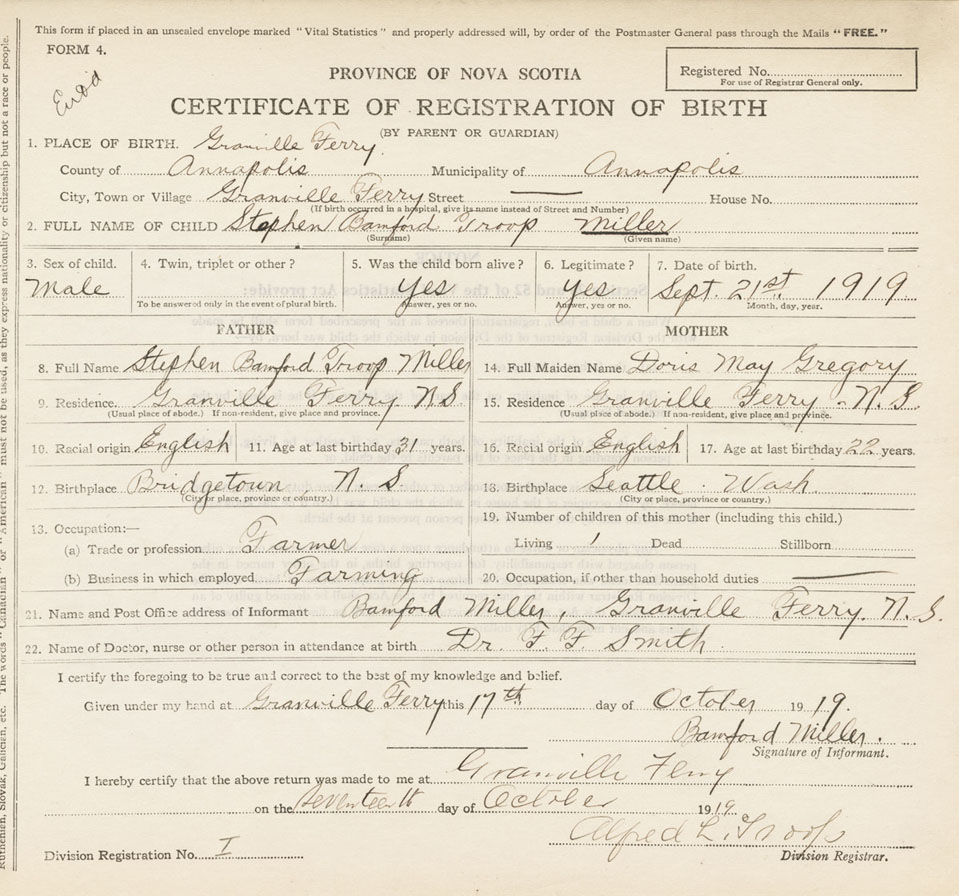 This form if placed in an unsealed envelope marked "Vital Statistics" and properly addressed will, by order of the Postmaster General pass through the Mails "FREE."
FORM 4.
PROVINCE OF NOVA SCOTIA
Registered No.
For use of Registrar General only.
CERTIFICATE OF REGISTRATION OF BIRTH
(BY PARENT OR GUARDIAN)
1. PLACE OF BIRTH. Granville Ferry.
County of Annapolis Municipality of Annapolis
City, Town or Village Granville Ferry Street House No.
(If birth occurred in a hospital, give its name instead of Street and Number)
2. FULL NAME OF CHILD Stephen Bamford Troop Miller
(Surname) (Given name)
3. Sex of child. 4. Twin, triplet or other? 5. Was the child born alive? 6. Legitimate? 7. Date of birth.
Male Yes Yes Sept. 21st. 1919.
To be answered only in the event of plural birth. Answer, yes or no. Answer, yes or no. Month, day, year.
FATHER MOTHER
8. Full Name Stephen Bamford Troop Miller 14. Full Maiden Name Doris May Gregory
9. Residence. Granville Ferry N.S. 15. Residence Granville Ferry - N.S.
(Usual place of abode.) If non-resident, give place and province. (Usual place of abode.) If non-resident, give place and province.
10. Racial origin English 11. Age at last birthday 31 years. 16. Racial origin English 17. Age at last birthday 22 years.
12. Birthplace Bridgetown N. S 18. Birthplace Seattle. Wash.
(City or place, province or country.) (City or place, province or country.)
13. Occupation:— 19. Number of children of this mother (including this child.)
(a) Trade or profession Farmer Living 1 Dead Stillborn
(b) Business in which employed Farming 20. Occupation, if other than household duties
21. Name and Post Office address of Informant Bamford Miller, Granville Ferry. N.S.
22. Name of Doctor, nurse or other person in attendance at birth Dr. F. F. Smith.
I certify the foregoing to be true and correct to the best of my knowledge and belief.
Given under my hand at Granville Ferry this 17th day of October 1919.
Bamford Miller.
Signature of Informant.
I hereby certify that the above return was made to me at Granville Ferry
on the Seventeenth day of October 1919
Alfred L. Troop
Division Registrar.
Division Registration No. I